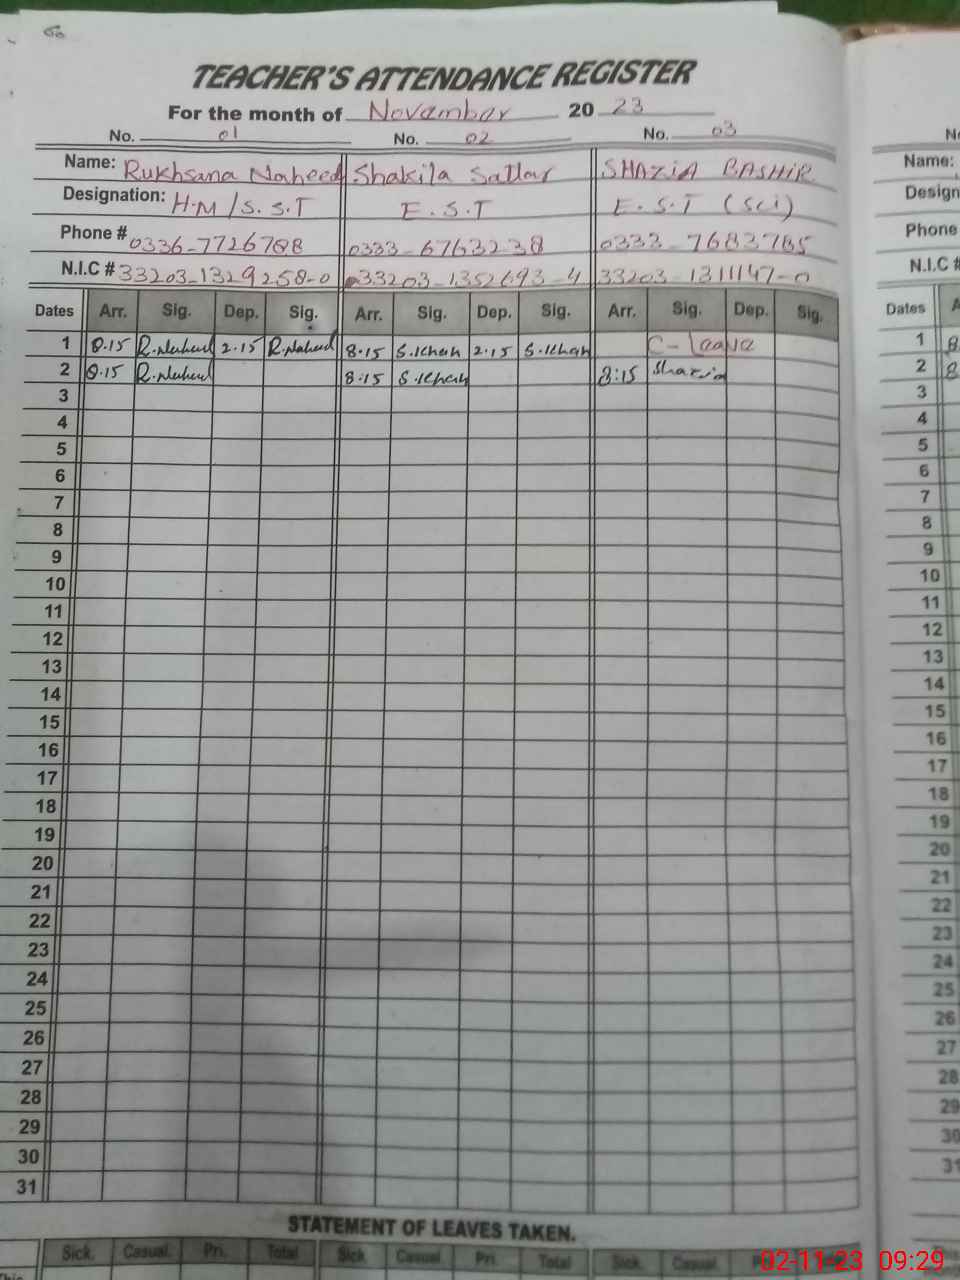 TEACHER'S ATTENDANCE REGISTER
For the month of Novambar 20 23
No. 01 No. 02 No. 03
Name: Rukhsana Naheed Shakila Sattar SHAZiA BASHiR
Designation: H.M / S.S.T E.S.T E.S.T (Sci)
Phone # 0336-7726788 0333-6763238 0333-7683785
N.I.C # 33203-1329258-0 33203-1352693-4 33203-1311147-0
Dates Arr. Sig. Dep. Sig. Arr. Sig. Dep. Sig. Arr. Sig. Dep. Sig.
1 8.15 R.Naheed 2.15 R.Naheed 8.15 S.Khan 2.15 S.Khan C-Leave
2 8.15 R.Naheed 8.15 S.Khan 8:15 Shazia
3
4
5
6
7
8
9
10
11
12
13
14
15
16
17
18
19
20
21
22
23
24
25
26
27
28
29
30
31
STATEMENT OF LEAVES TAKEN.
Sick. Casual. Pri. Total Sick. Casual. Pri. Total Sick. Casual.
Name:
Phone
N.I.C #
Dates
1
2
3
4
5
6
7
8
9
10
11
12
13
14
15
16
17
18
19
20
21
22
23
24
25
26
27
28
29
30
31
02-11-23 09:29